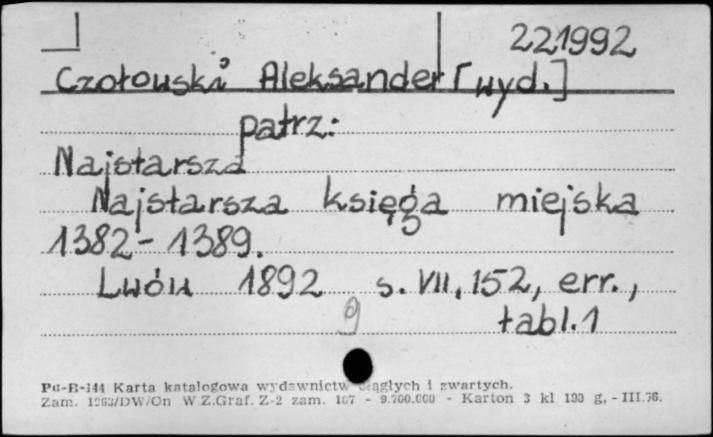 221992
Czołowski Aleksander [wyd.]
patrz:
Najstarsza
Najstarsza księga miejska
1382-1389.
Lwów 1892 s. VII, 152, err.,
9 tabl. 1
Pu-B-144 Karta katalogowa wydawnictw ciągłych i zwartych.
Zam. DW/On W.Z.Graf. Z-2 zam. - 9.700.000 - Karton 3 kl g, - III.76.